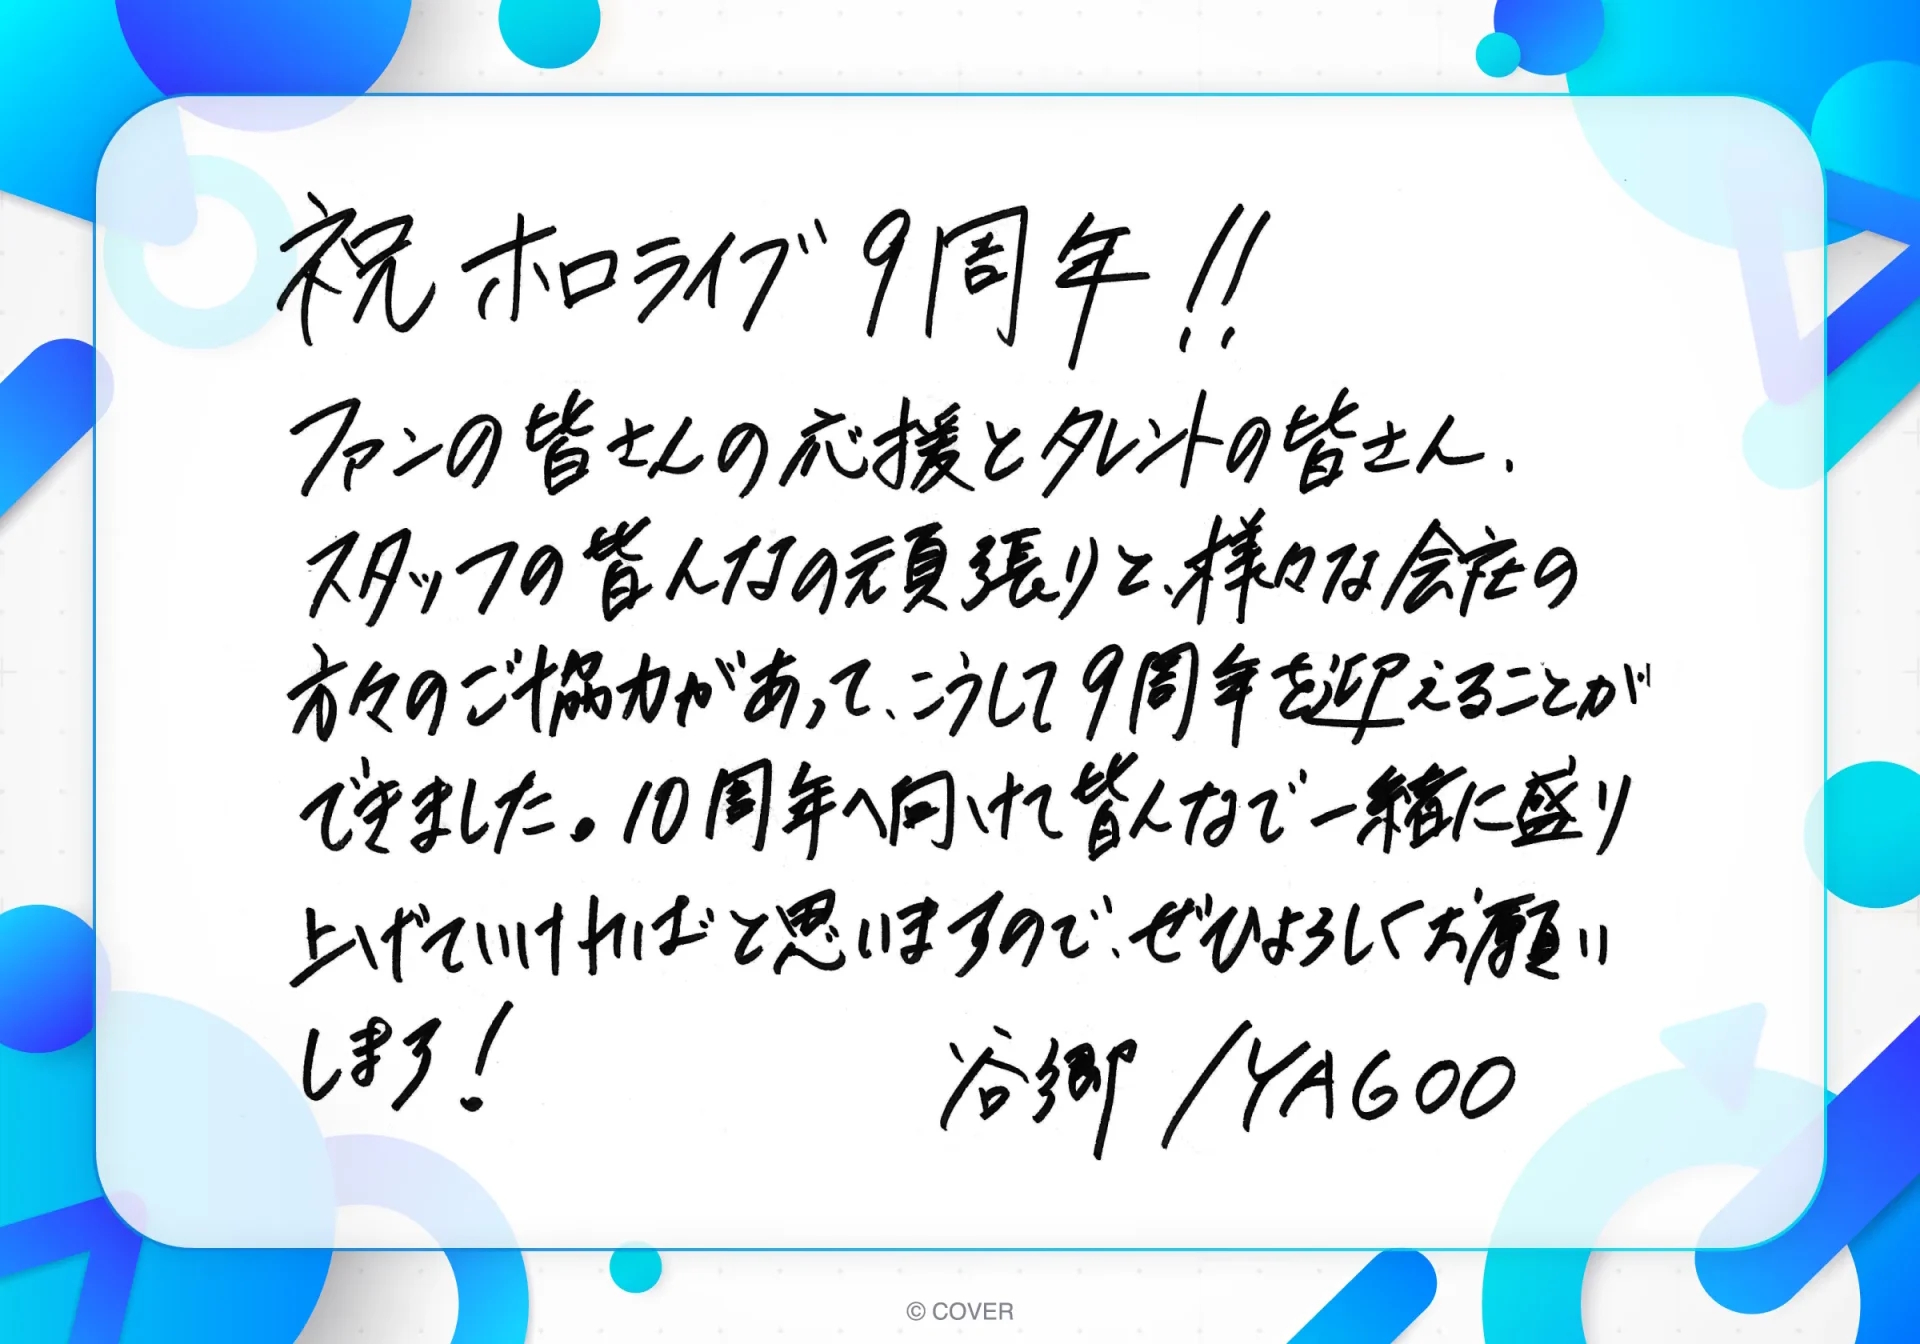 祝 ホロライブ 9周年!!
ファンの皆さんの応援とタレントの皆さん、
スタッフの皆んなの頑張りと、様々な会社の
方々のご協力があって、こうして9周年を迎えることが
できました。10周年へ向けて皆んなで一緒に盛り
上げていければと思いますので、ぜひよろしくお願い
します!
谷郷 /YAGOO
© COVER